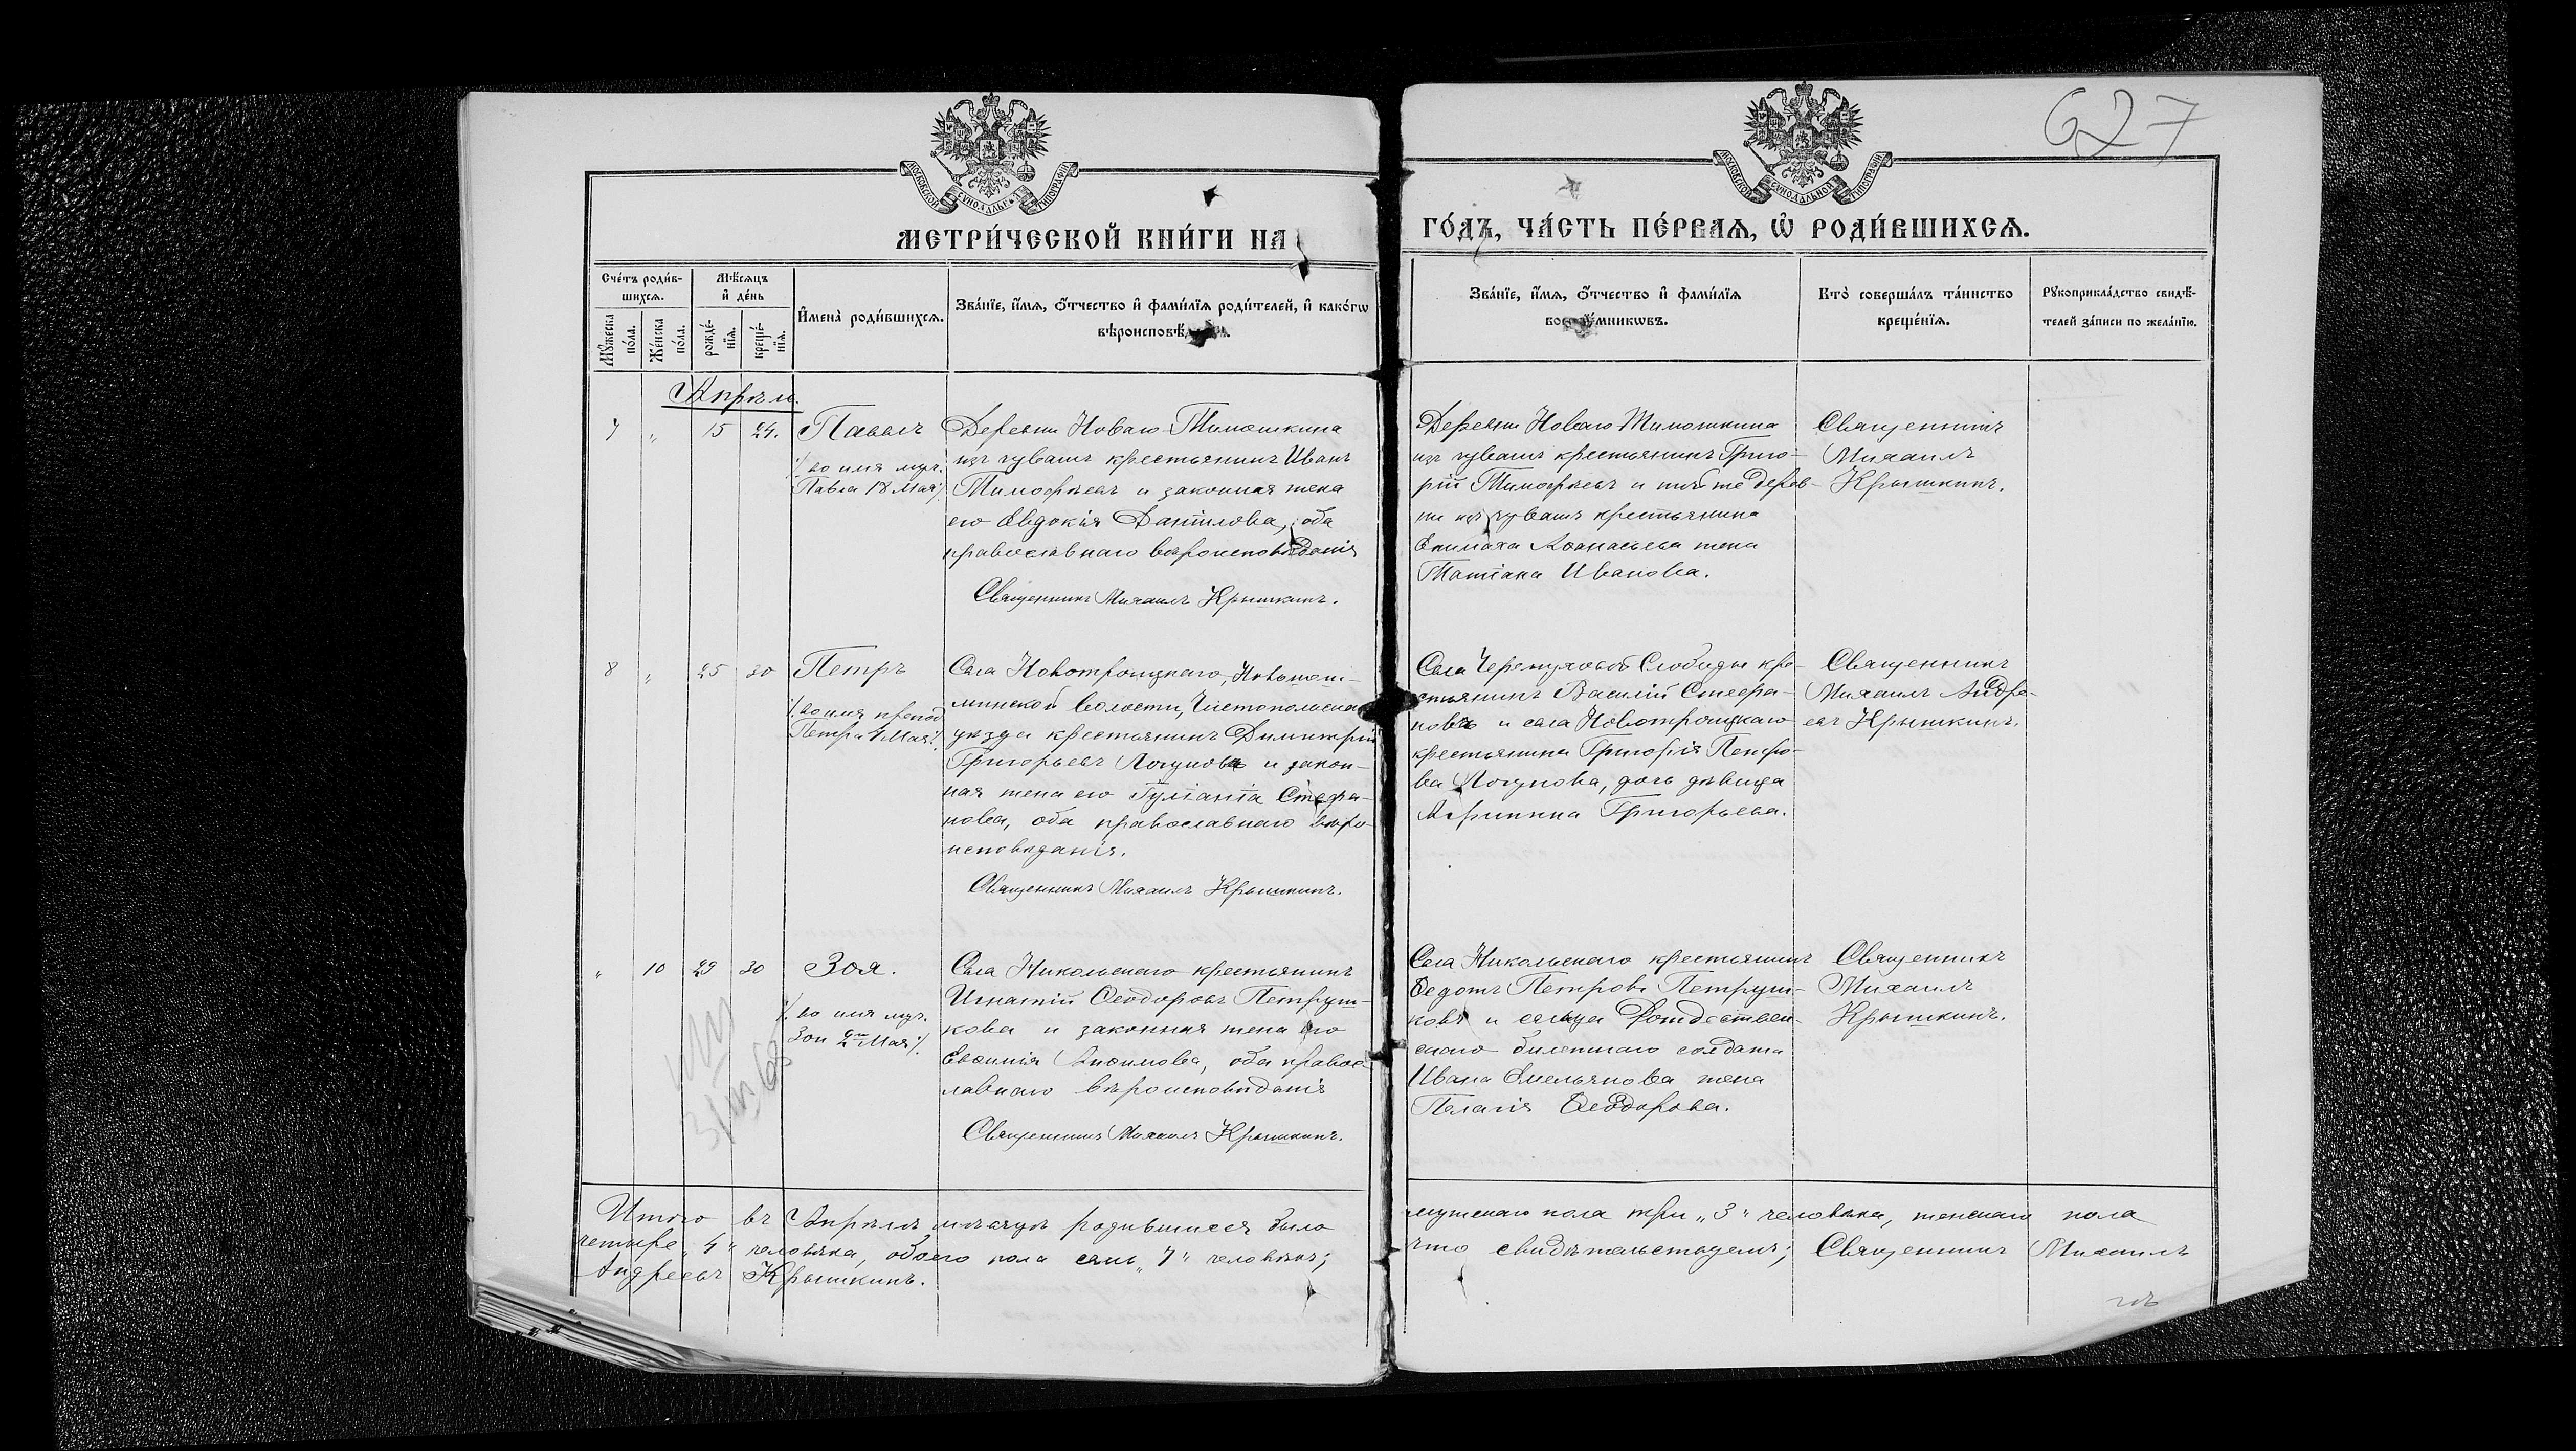 627
МОСКОВСКОЙ СѴНОДАЛЬНОЙ ТИПОГРАФІИ
МОСКОВСКОЙ СѴНОДАЛЬНОЙ ТИПОГРАФІИ
МЕТРИ́ЧЕСКОЙ КНИ́ГИ НА
ГО́ДЪ, ЧА́СТЬ ПЕ́РВАѦ, Ѡ҆ РОДИ́ВШИХСѦ.
Сче́тъ роди́в-
шихсѧ.
Мꙋ́жеска
по́ла.
Же́нска
по́ла.
Мѣ́сѧцъ
и҆ де́нь
рожде́-
нїѧ.
креще́-
нїѧ.
И҆мена̀ роди́вшихсѧ.
Зва́нїе, и҆́мѧ, ѻ҆́тчество и҆ фами́лїѧ роди́телей, и҆ како́гѡ
вѣроисповѣ́д
Зва́нїе, и҆́мѧ, ѻ҆́тчество и҆ фами́лїѧ
воспрїе́мникѡвъ.
Кто̀ соверша́лъ та́инство
креще́нїѧ.
Рꙋкоприкла́дство свидѣ́-
телей за́писи по жела́нїю.
Апрѣль.
7 " 15 24. Павелъ
/. во имя муч.
Павла 18 Мая ./
Деревни Новаго Тимошкина
изъ чувашъ крестьянинъ Иванъ
Тимофѣевъ и законная жена
его Евдокія Данилова, оба
православнаго вѣроисповѣданія
Священникъ Михаилъ Крышкинъ.
Деревни Новаго Тимошкина
изъ чувашъ крестьянинъ Григо-
рій Тимофѣевъ и той же дерев-
ни изъ чувашъ крестьянина
Епимаха Аѳанасьева жена
Татіана Иванова.
Священникъ
Михаилъ
Крышкинъ.
8 " 25 30 Петръ
/. во имя препод
Петра Мая ./
Села Новотроицкаго, Новошеш-
минской волости, Чистопольскаго
уѣзда крестьянинъ Димитрій
Григорьевъ Логуновъ и закон-
ная жена его Іуліанія Стефа-
нова, оба православнаго вѣро-
исповѣданія.
Священникъ Михаилъ Крышкинъ.
Села Черемуховой Слободы кре-
стьянинъ Василій Стефа-
новъ и села Новотроицкаго
крестьянина Григорія Петро-
ва Логунова, дочь дѣвица
Агрипина Григорьева.
Священникъ
Михаилъ Андре-
евъ Крышкинъ.
" 10 29 30 Зоя.
/. во имя муч.
Зои 2го Мая ./
Села Никольскаго крестьянинъ
Игнатій Ѳеодоровъ Петруш-
кова и законная жена его
Евѳимія Анѳимова, оба правос-
лавнаго вѣроисповѣданія
Священникъ Михаилъ Крышкинъ.
Села Никольскаго крестьянинъ
Ѳедотъ Петровъ Петруш-
ковъ и сельца Рождествен-
скаго билетнаго солдата
Ивана Емельянова жена
Пелагія Ѳеодорова.
Священникъ
Михаилъ
Крышкинъ.
Итого въ Апрѣлѣ мѣсяцѣ родившихся было
мужскаго пола три „3" человѣка, женскаго пола
четыре „4" человѣка, обоего пола семь „7" человѣкъ;
что свидѣтельствуемъ; Священникъ Михаилъ
Андреевъ Крышкинъ.